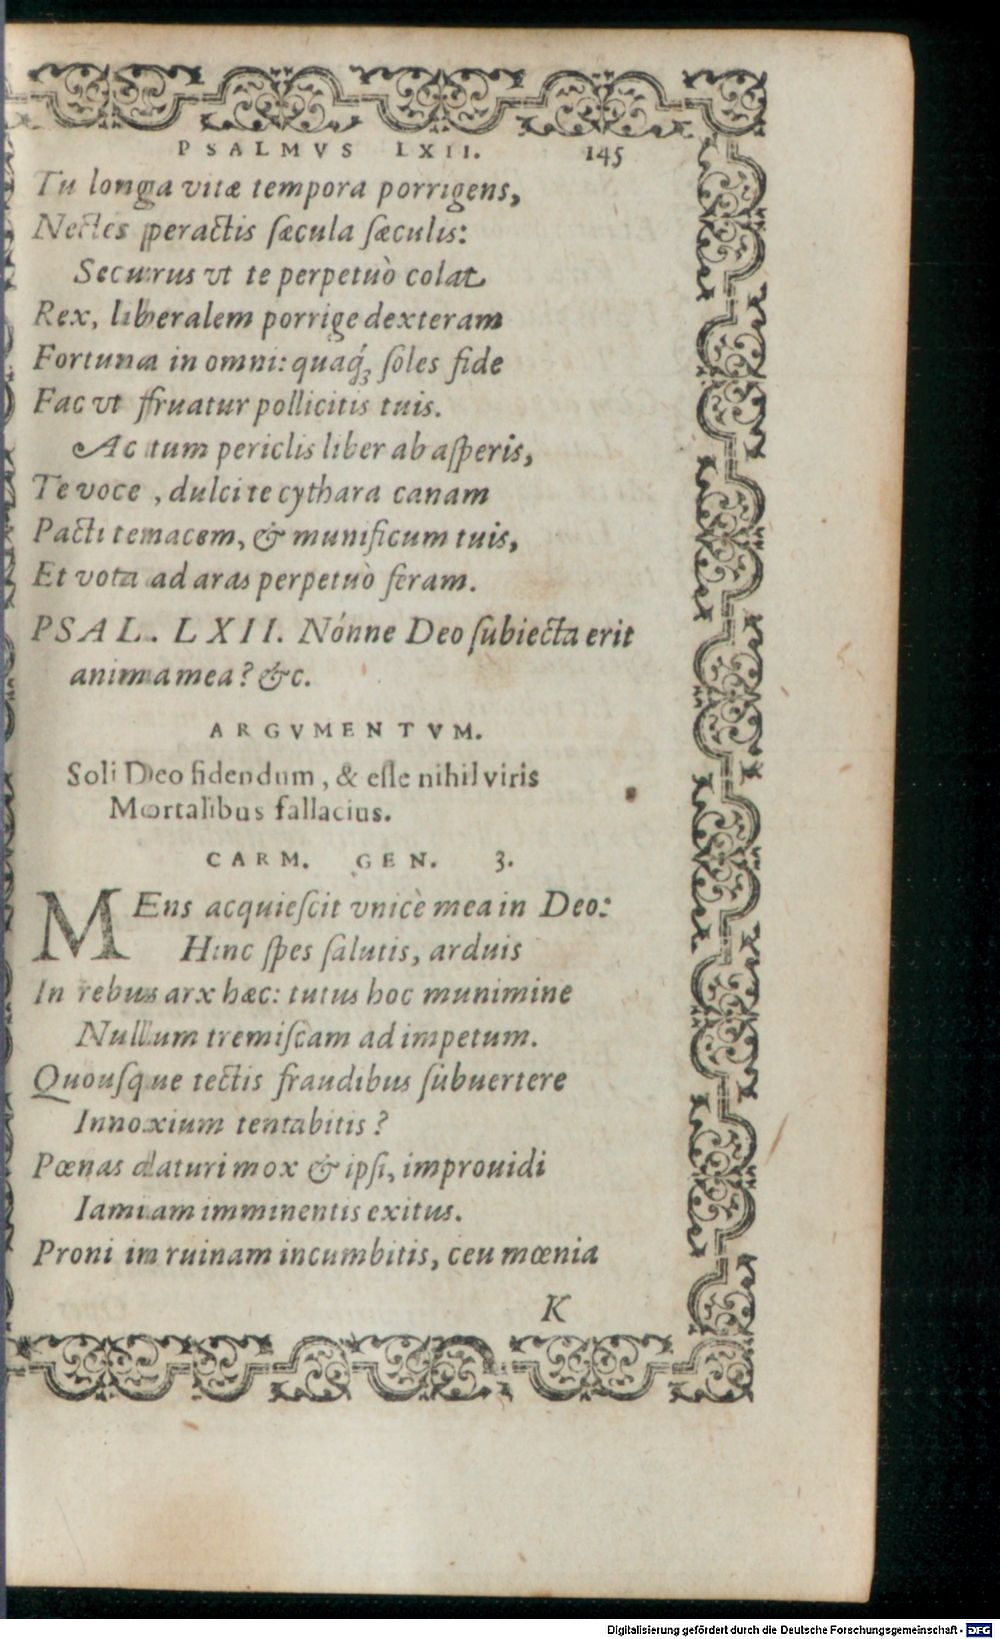 PSALMVS LXII. 145
Tu longa vitæ tempora porrigens,
Nectes peractis sæcula sæculis:
Securus vt te perpetuò colat
Rex, liberalem porrige dexteram
Fortuna in omni: quaq́ꝫ soles fide
Fac vt fruatur pollicitis tuis.
Ac tum periclis liber ab asperis,
Te voce, dulci te cythara canam
Pacti tenacem, & munificum tuis,
Et vota ad aras perpetuò feram.
PSAL. LXII. Nónne Deo subiecta erit
anima mea? &c.
ARGVMENTVM.
Soli Deo fidendum, & esse nihil viris
Mortalibus fallacius.
CARM. GEN. 3.
MEns acquiescit vnicè mea in Deo:
Hinc spes salutis, arduis
In rebus arx hæc: tutus hoc munimine
Nullum tremiscam ad impetum.
Quousque tectis fraudibus subuertere
Innoxium tentabitis?
Pœnas daturi mox & ipsi, improuidi
Iam iam imminentis exitus.
Proni in ruinam incumbitis, ceu mœnia
K
Digitalisierung gefördert durch die Deutsche Forschungsgemeinschaft - DFG